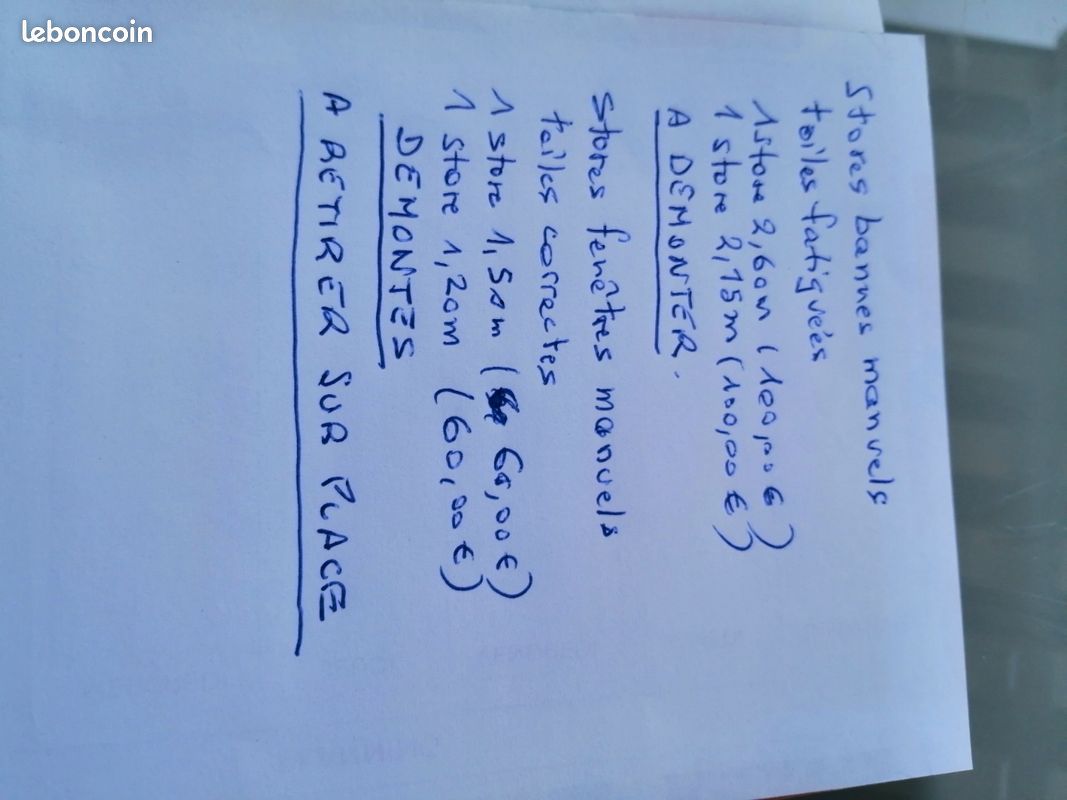 leboncoin
Stores bannes manuels
toiles fatiguées
1 store 2,60m (100,00€)
1 store 2,15m (100,00€)
A DÉMONTER.
Stores fenêtres manuels
toiles correctes
1 store 1,50m (60,00€)
1 store 1,20m (60,00€)
DEMONTES
A RETIRER SUR PLACE